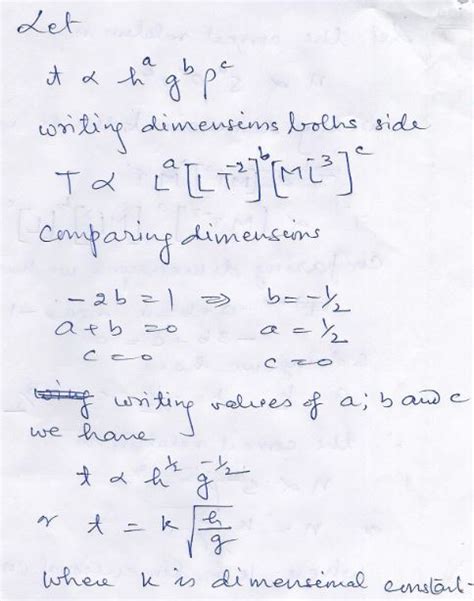 Let
t ∝ h^a g^b ρ^c
writing dimensions boths side
T ∝ L^a [L T^-2]^b [M L^-3]^c
Comparing dimensions
-2b = 1 ⇒ b = -1/2
a + b = 0 a = 1/2
c = 0 c = 0
writing values of a; b and c
we have
t ∝ h^1/2 g^-1/2
or t = k √(h/g)
where k is dimensional constant-